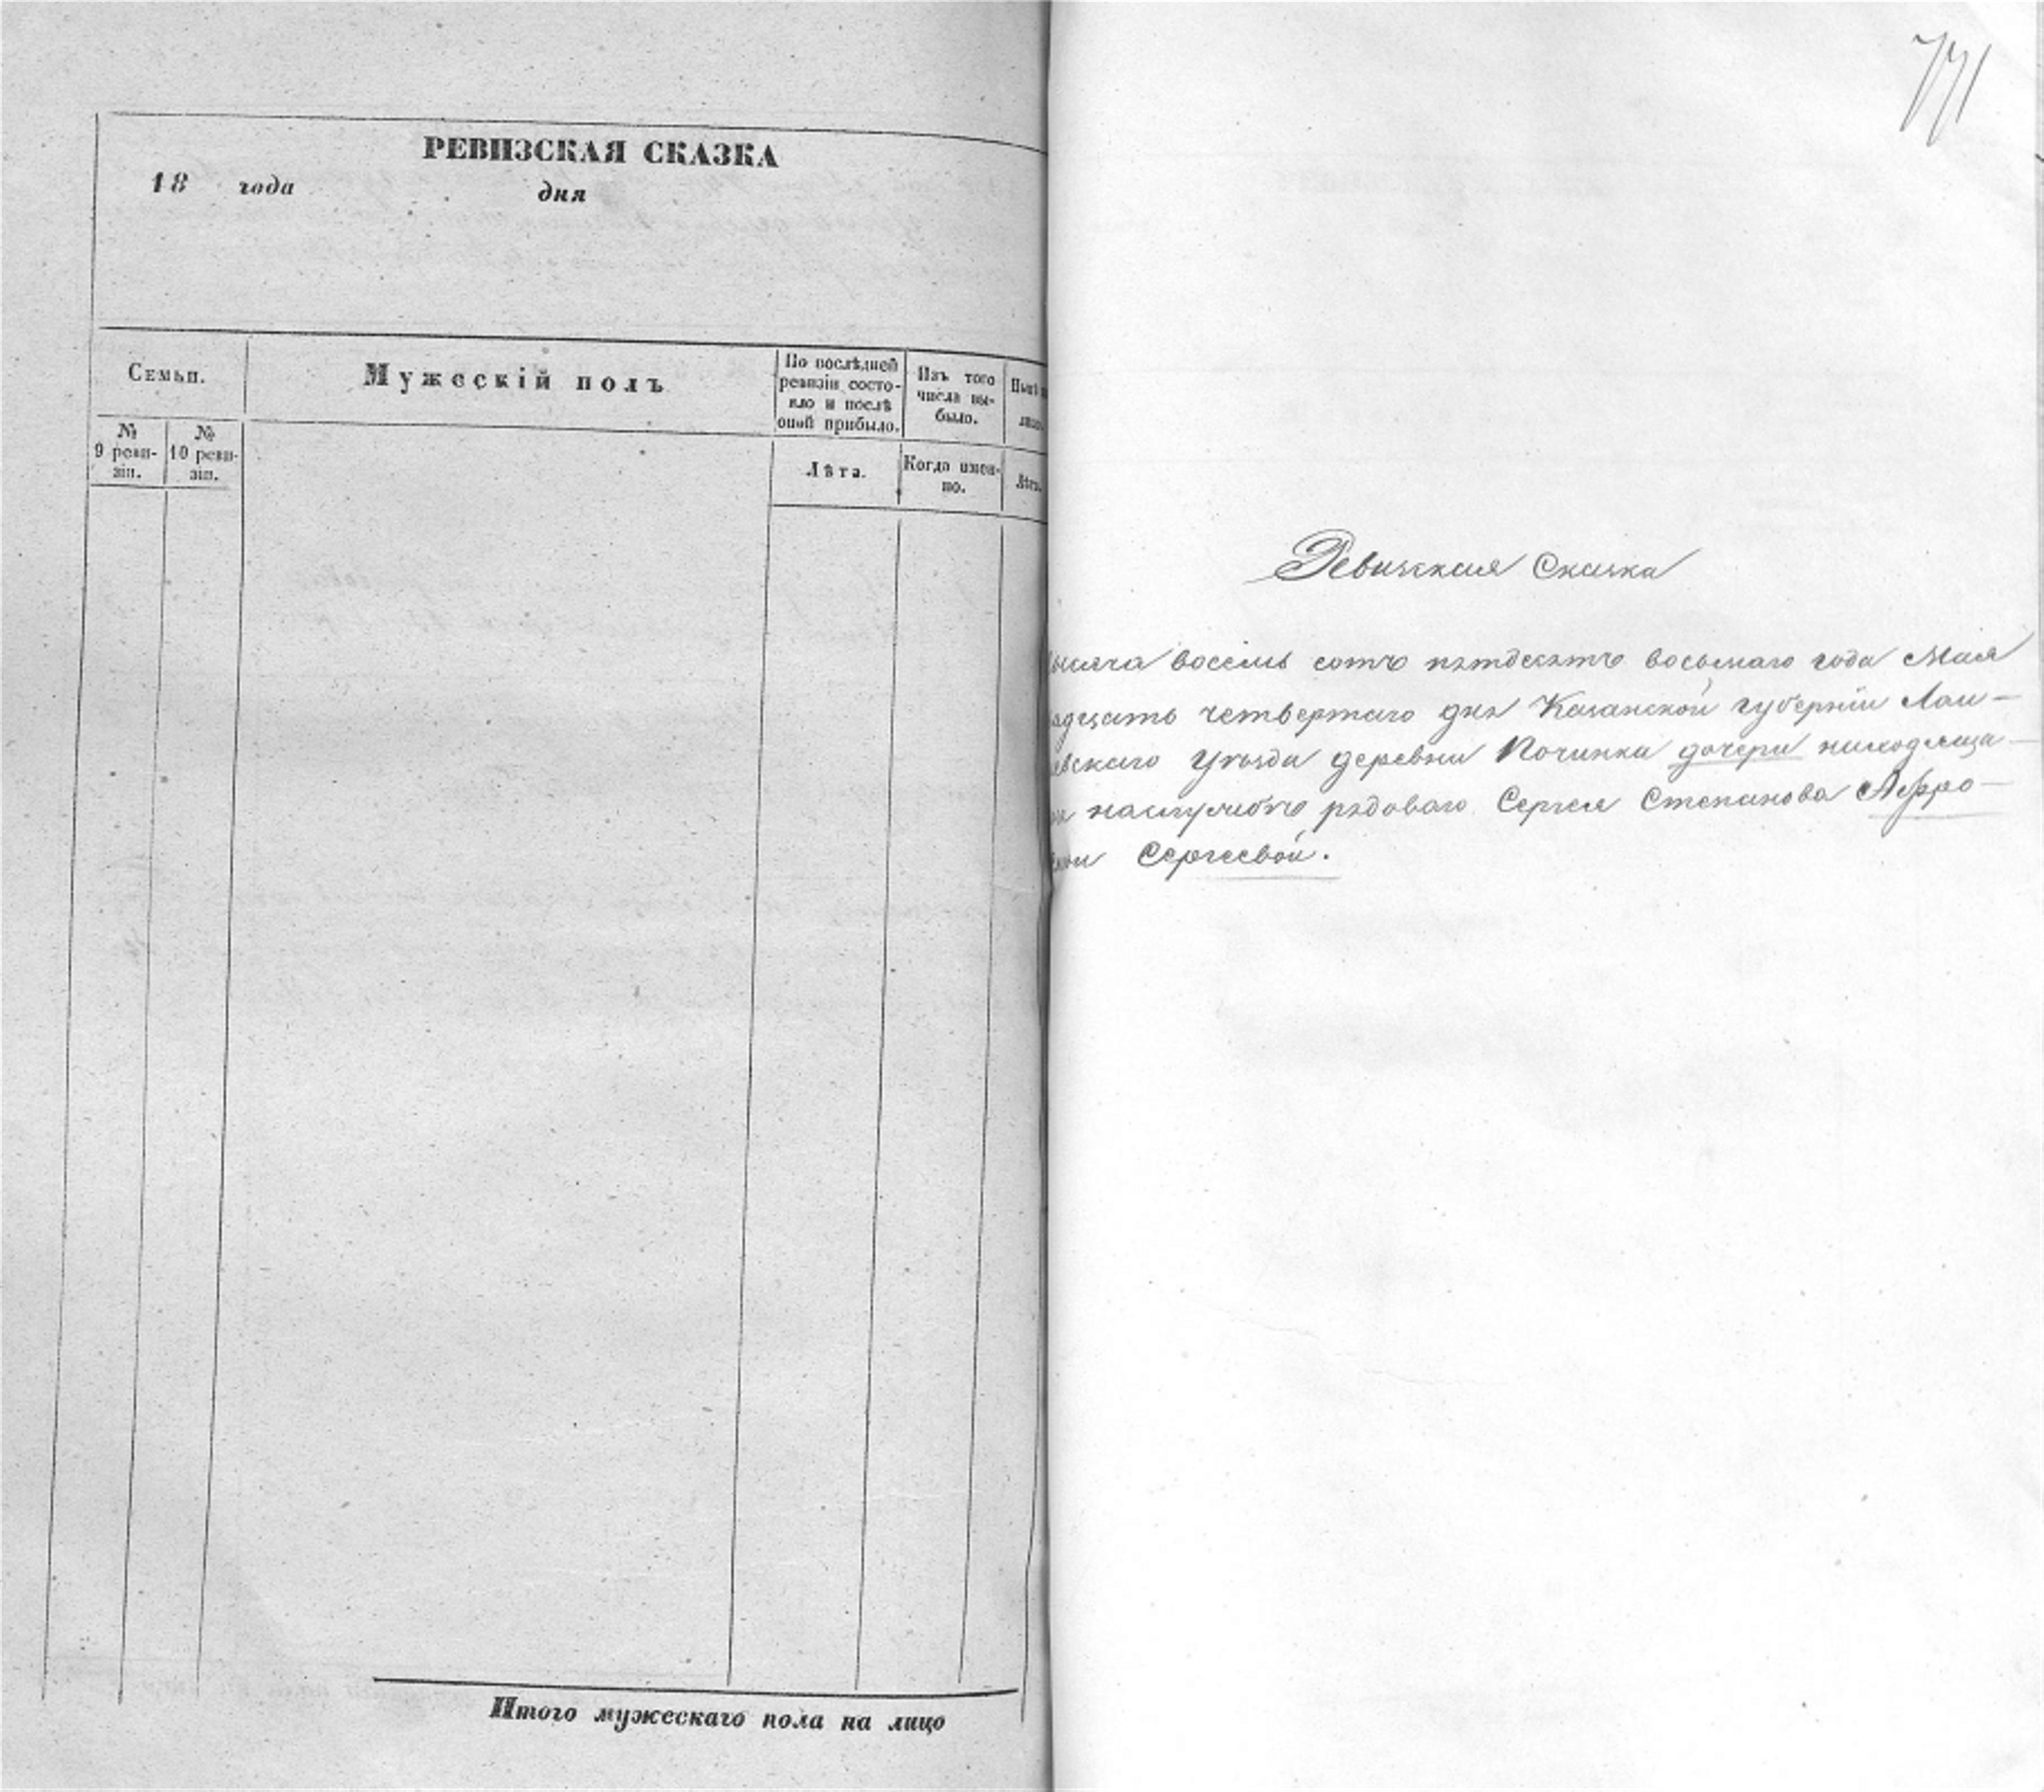 РЕВИЗСКАЯ СКАЗКА
18 года дня
Семьи.
Мужескій полъ
По послѣдней
ревизіи состо-
яло и послѣ
оной прибыло.
Изъ того
числа вы-
было.
№
9 реви-
зіи.
№
10 реви-
зіи.
Лѣта.
Когда имен-
но.
Лѣта.
Итого мужескаго пола на лицо
771
Ревизская Сказка
тысяча восемь сотъ пятдесятъ восьмаго года Мая
четвертаго дня Казанской губерніи Лаи-
шевскаго Уѣзда деревни Починка дочери находяща-
рядоваго Сергея Степанова Афро-
Сергеевой.